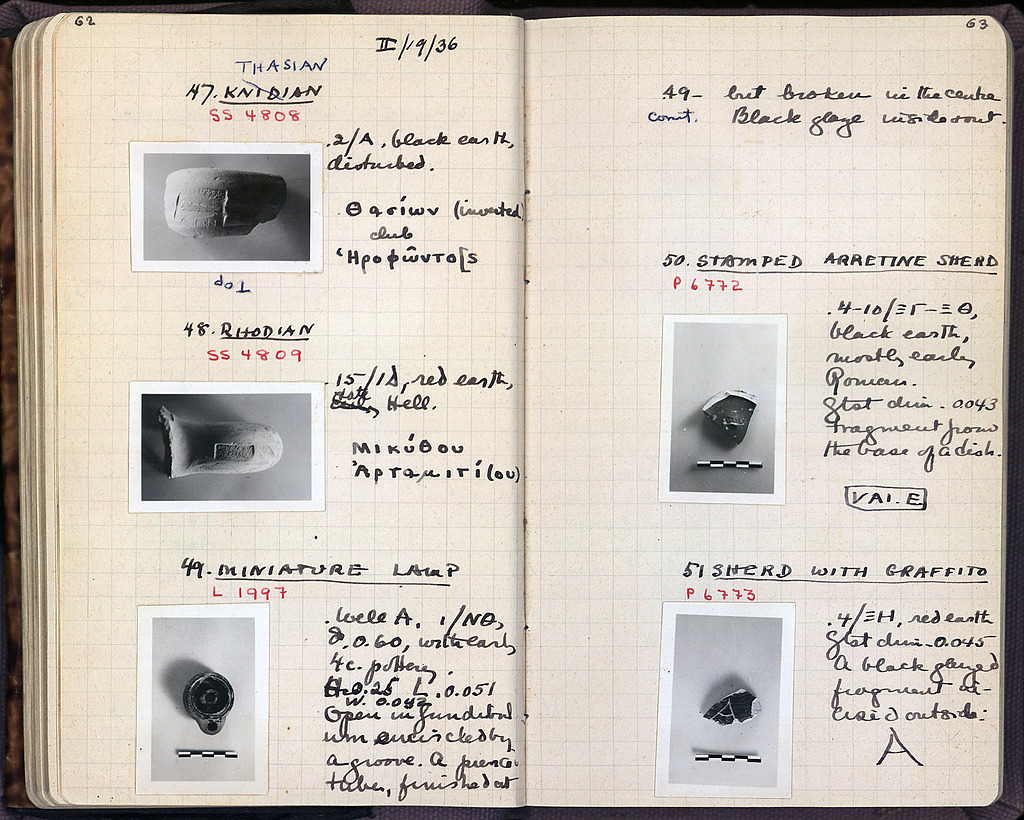 62
II/19/36
THASIAN
47. KNIDIAN
SS 4808
.2/A, black earth,
disturbed.
Θασίων (inverted)
club
Ἡροφῶντο[ς
Top
48. RHODIAN
SS 4809
.15/ΙΔ, red earth,
late Hell.
Μικύθου
Ἀρταμιτί(ου)
49. MINIATURE LAMP
L 1997
.Well A, 1/ΝΘ,
8.0.60, with early
4c. pottery.
H. 0.25 L. 0.051
W. 0.042
Open infundibul
um encircled by
a groove. A pierced
tube, finished at
63
49- but broken in the centre
cont. Black glaze inside & out.
50. STAMPED ARRETINE SHERD
P 6772
.4-10/ΞΓ-ΞΘ,
black earth,
mostly early
Roman.
Gtst dim. 0.043
Fragment from
the base of a dish.
VAL.E
51 SHERD WITH GRAFFITO
P 6773
.4/ΞΗ, red earth
Gtst dim. 0.045
A black glazed
fragment in-
cised outside:
A